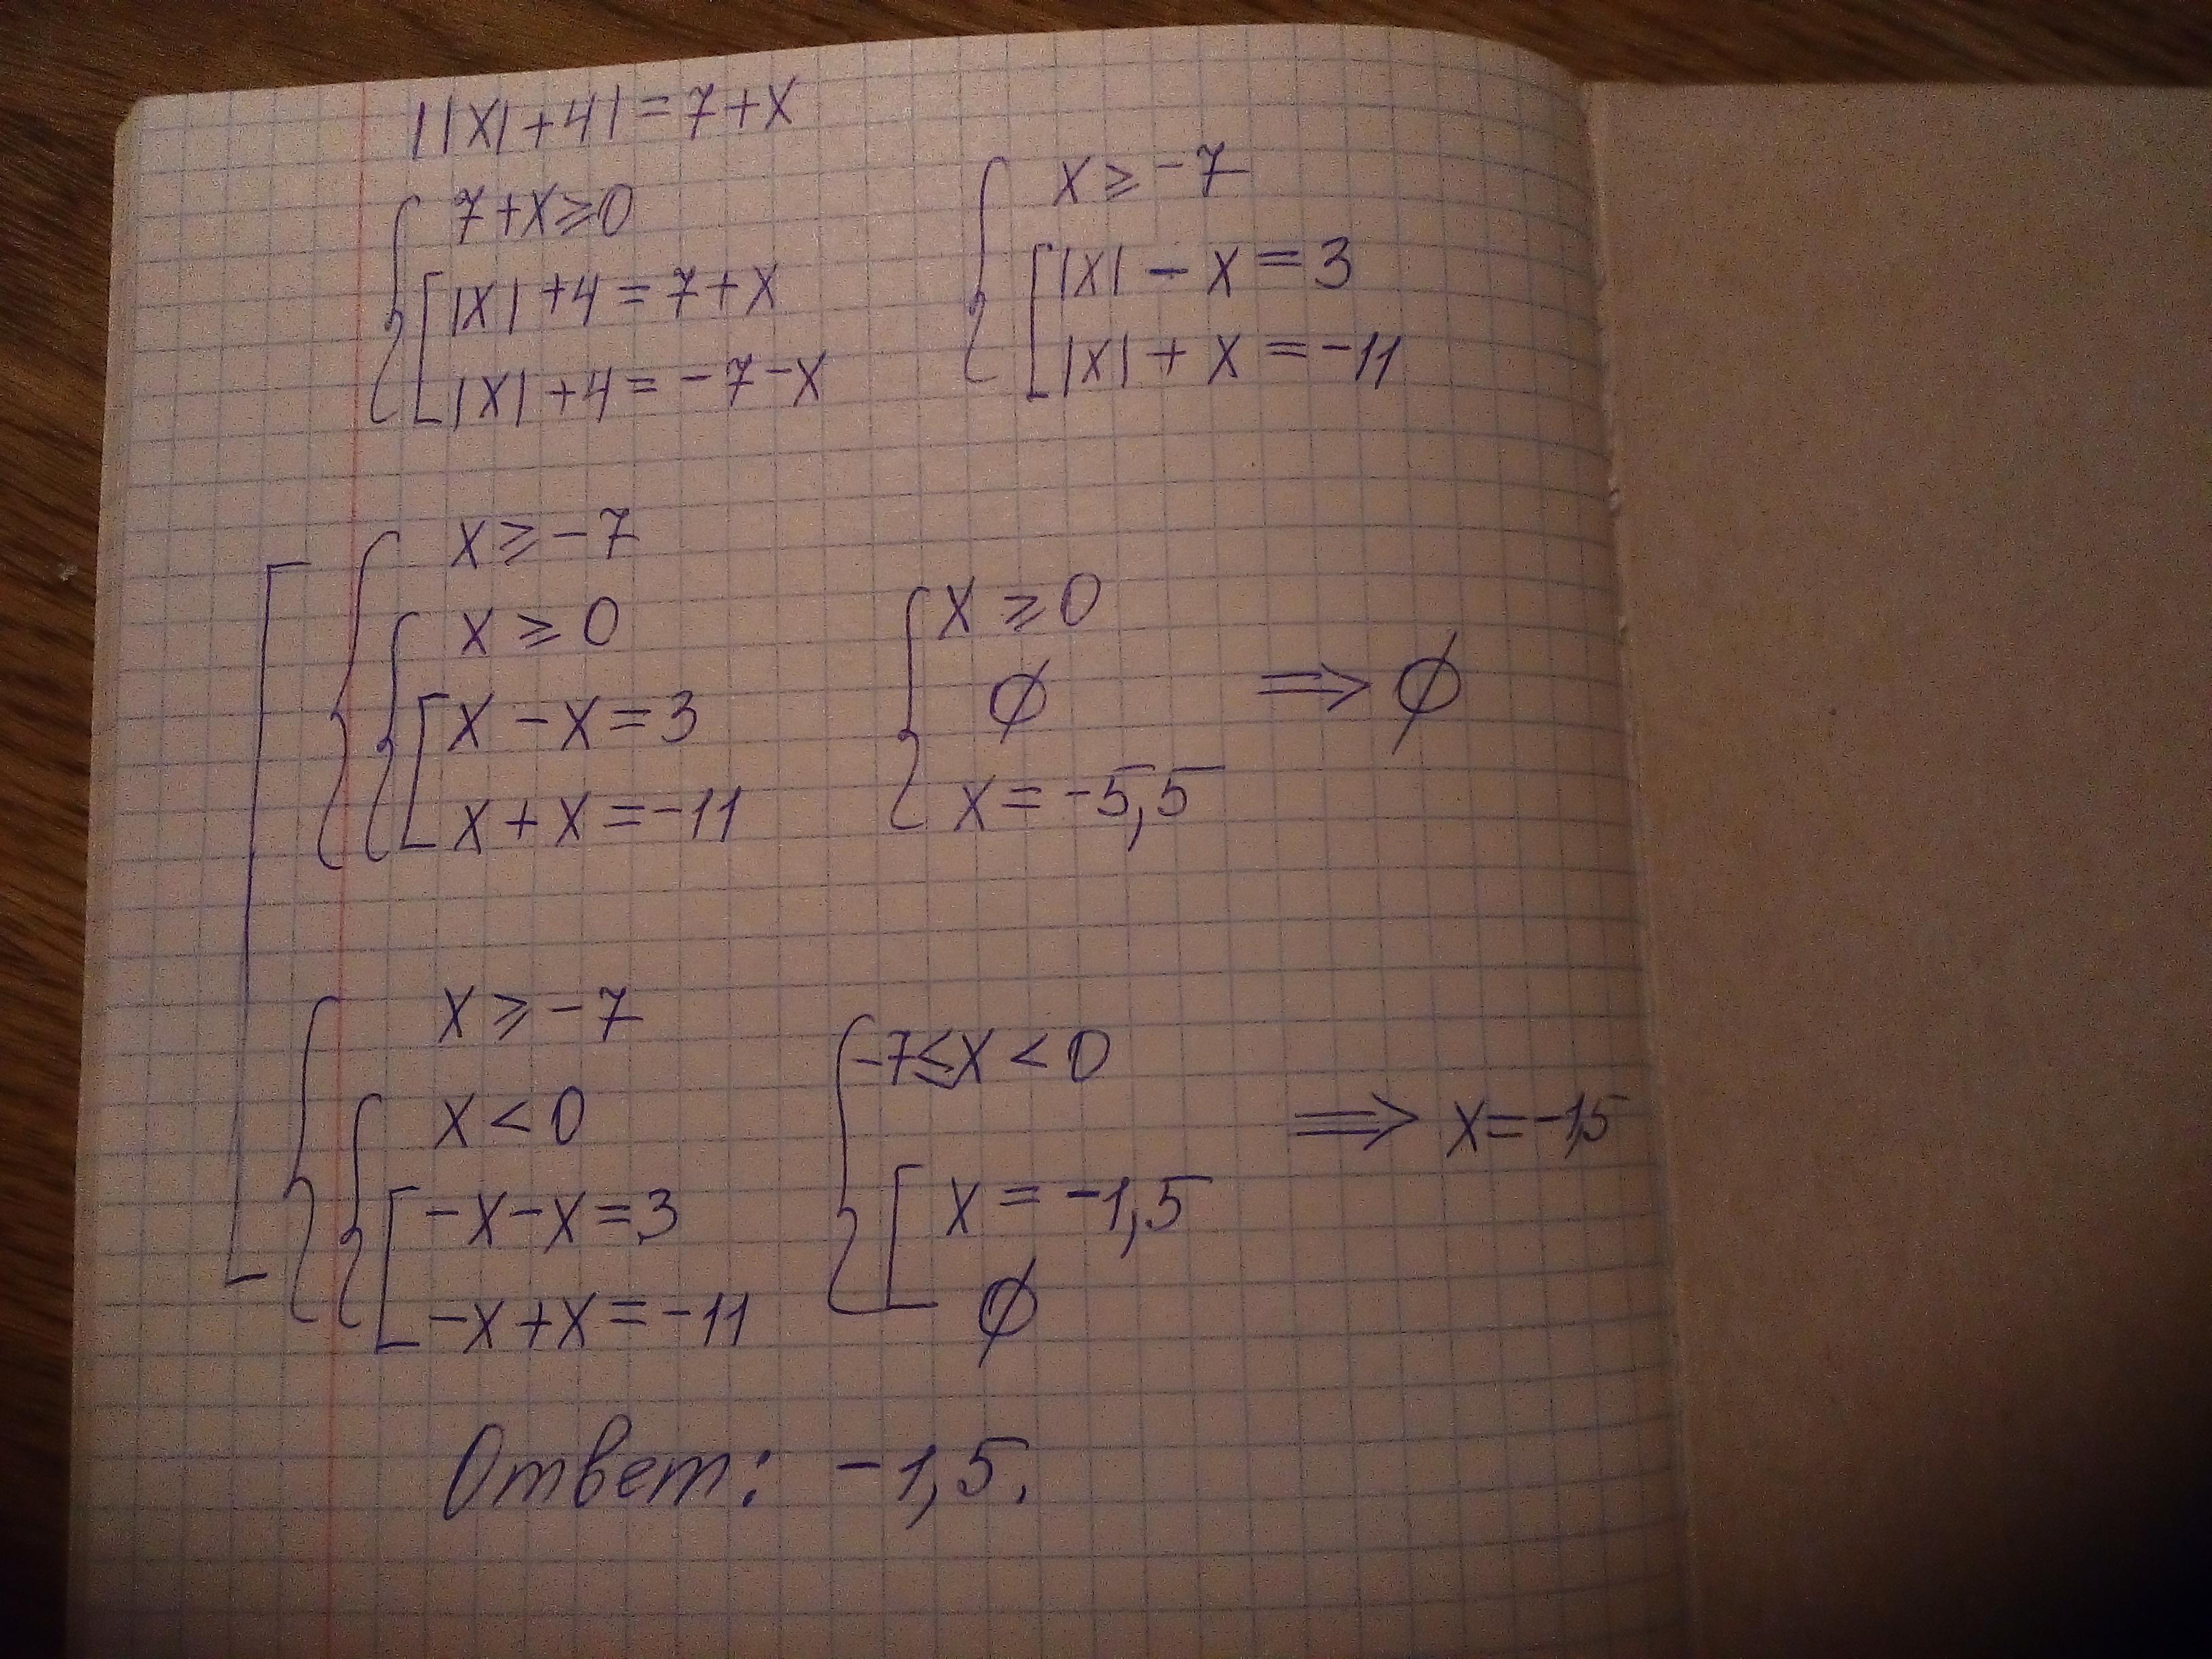 ||x|+4|=7+x
7+x≥0
|x|+4=7+x
|x|+4=-7-x
x≥-7
|x|-x=3
|x|+x=-11
x≥-7
x≥0
x-x=3
x+x=-11
x≥0
∅
x=-5,5
⇒∅
x≥-7
x<0
-x-x=3
-x+x=-11
-7≤x<0
x=-1,5
∅
⇒x=-1,5
Ответ: -1,5.